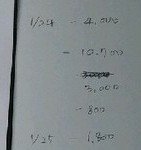 1/24 - 4,000
- 10,700
3,000
- 800
1/25 - 1,800